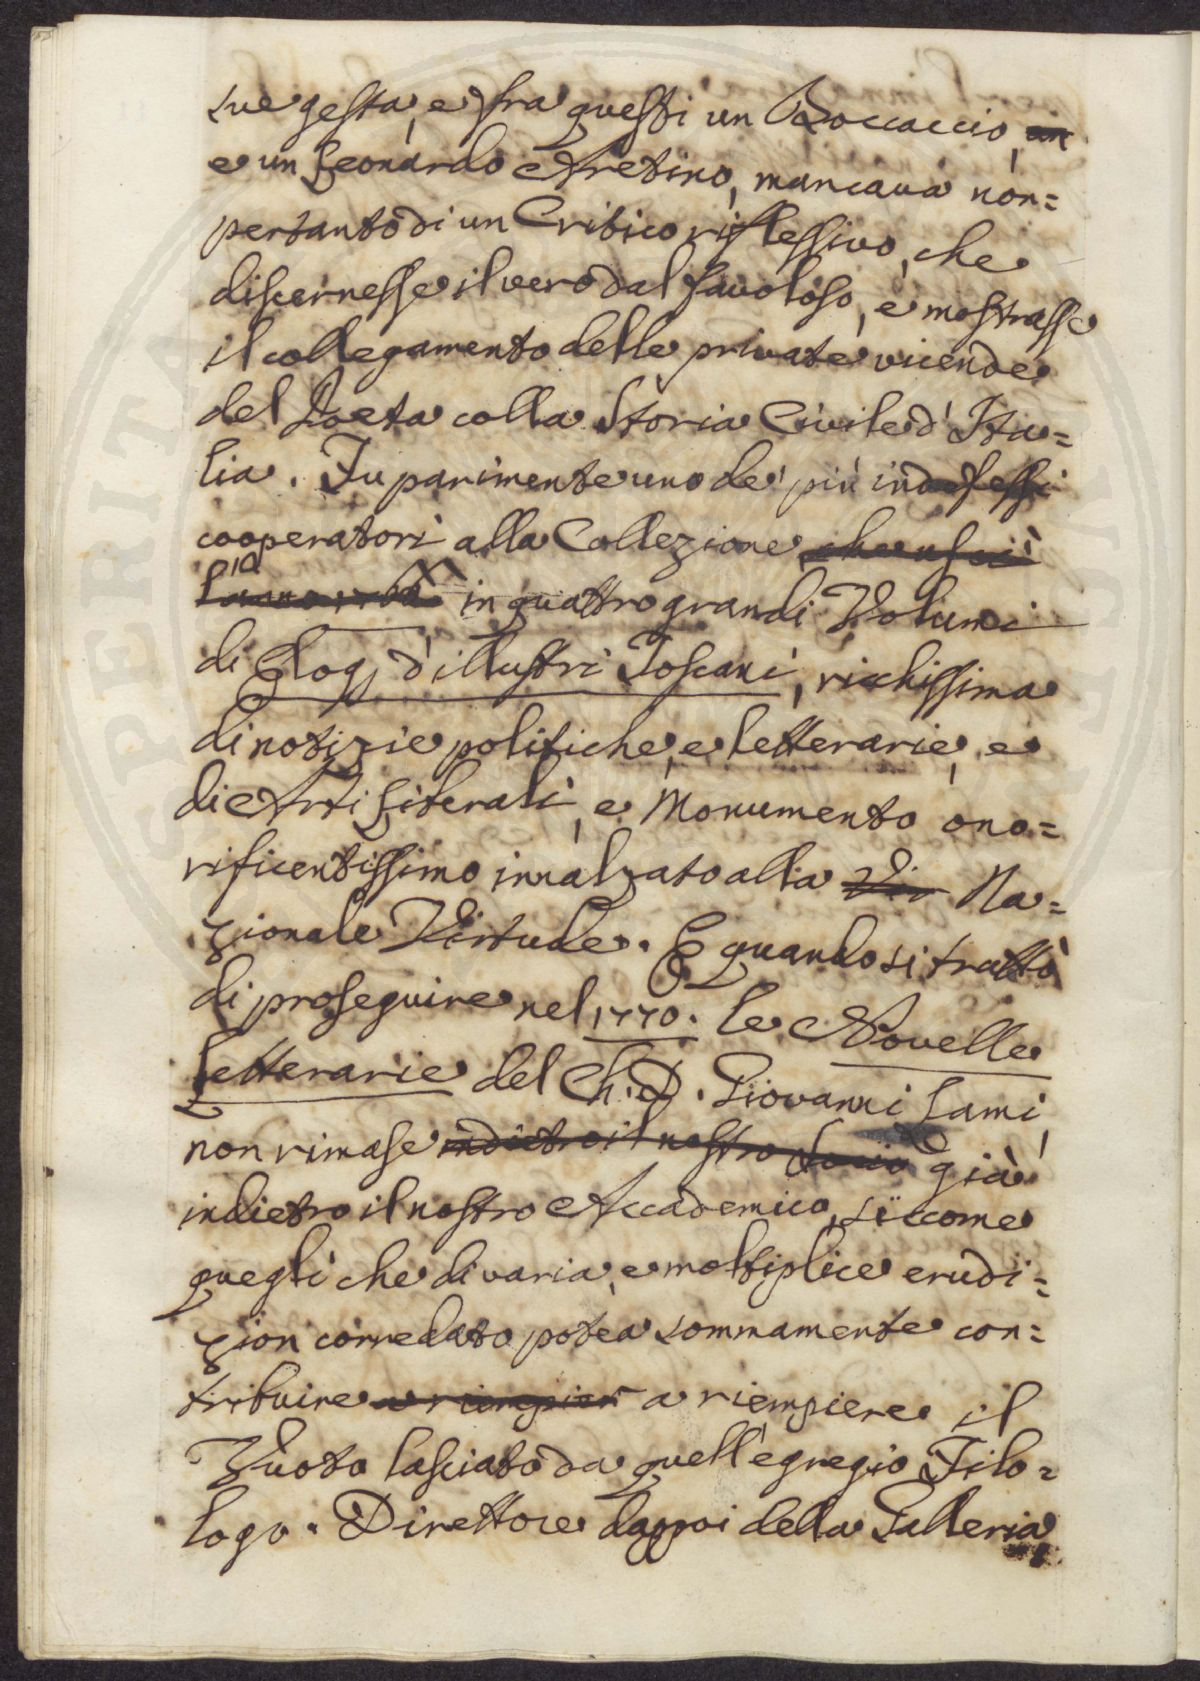 sue gesta, e fra questi un Boccaccio, un
e un Leonardo Aretino, mancava non=
pertanto di un Critico riflessivo, che
discernesse il vero dal favoloso, e mostrasse
il collegamento delle private vicende
del Poeta colla Storia Civile d'Ita=
lia. Fu parimente uno de' più indefessi
cooperatori alla Collezione che uscì
l'anno in quattro grandi Volumi
di Elogj d'illustri Toscani, ricchissima
di notizie politiche, e letterarie, e
di Arti Liberali, e Monumento ono=
rificentissimo innalzato alla Vir Na=
zionale Virtude. E quando si trattò
di proseguire nel 1770. le Novelle
Letterarie del Ch. D. Giovanni Lami,
non rimase indietro il nostro Socio già
indietro il nostro Accademico, siccome
quegli che di varia, e moltiplice erudi=
zion corredato potea sommamente con=
tribuire a riempier a riempiere il
Vuoto lasciato da quell'egregio Filo=
logo. Direttore dappoi della Galleria,
SPERITAS